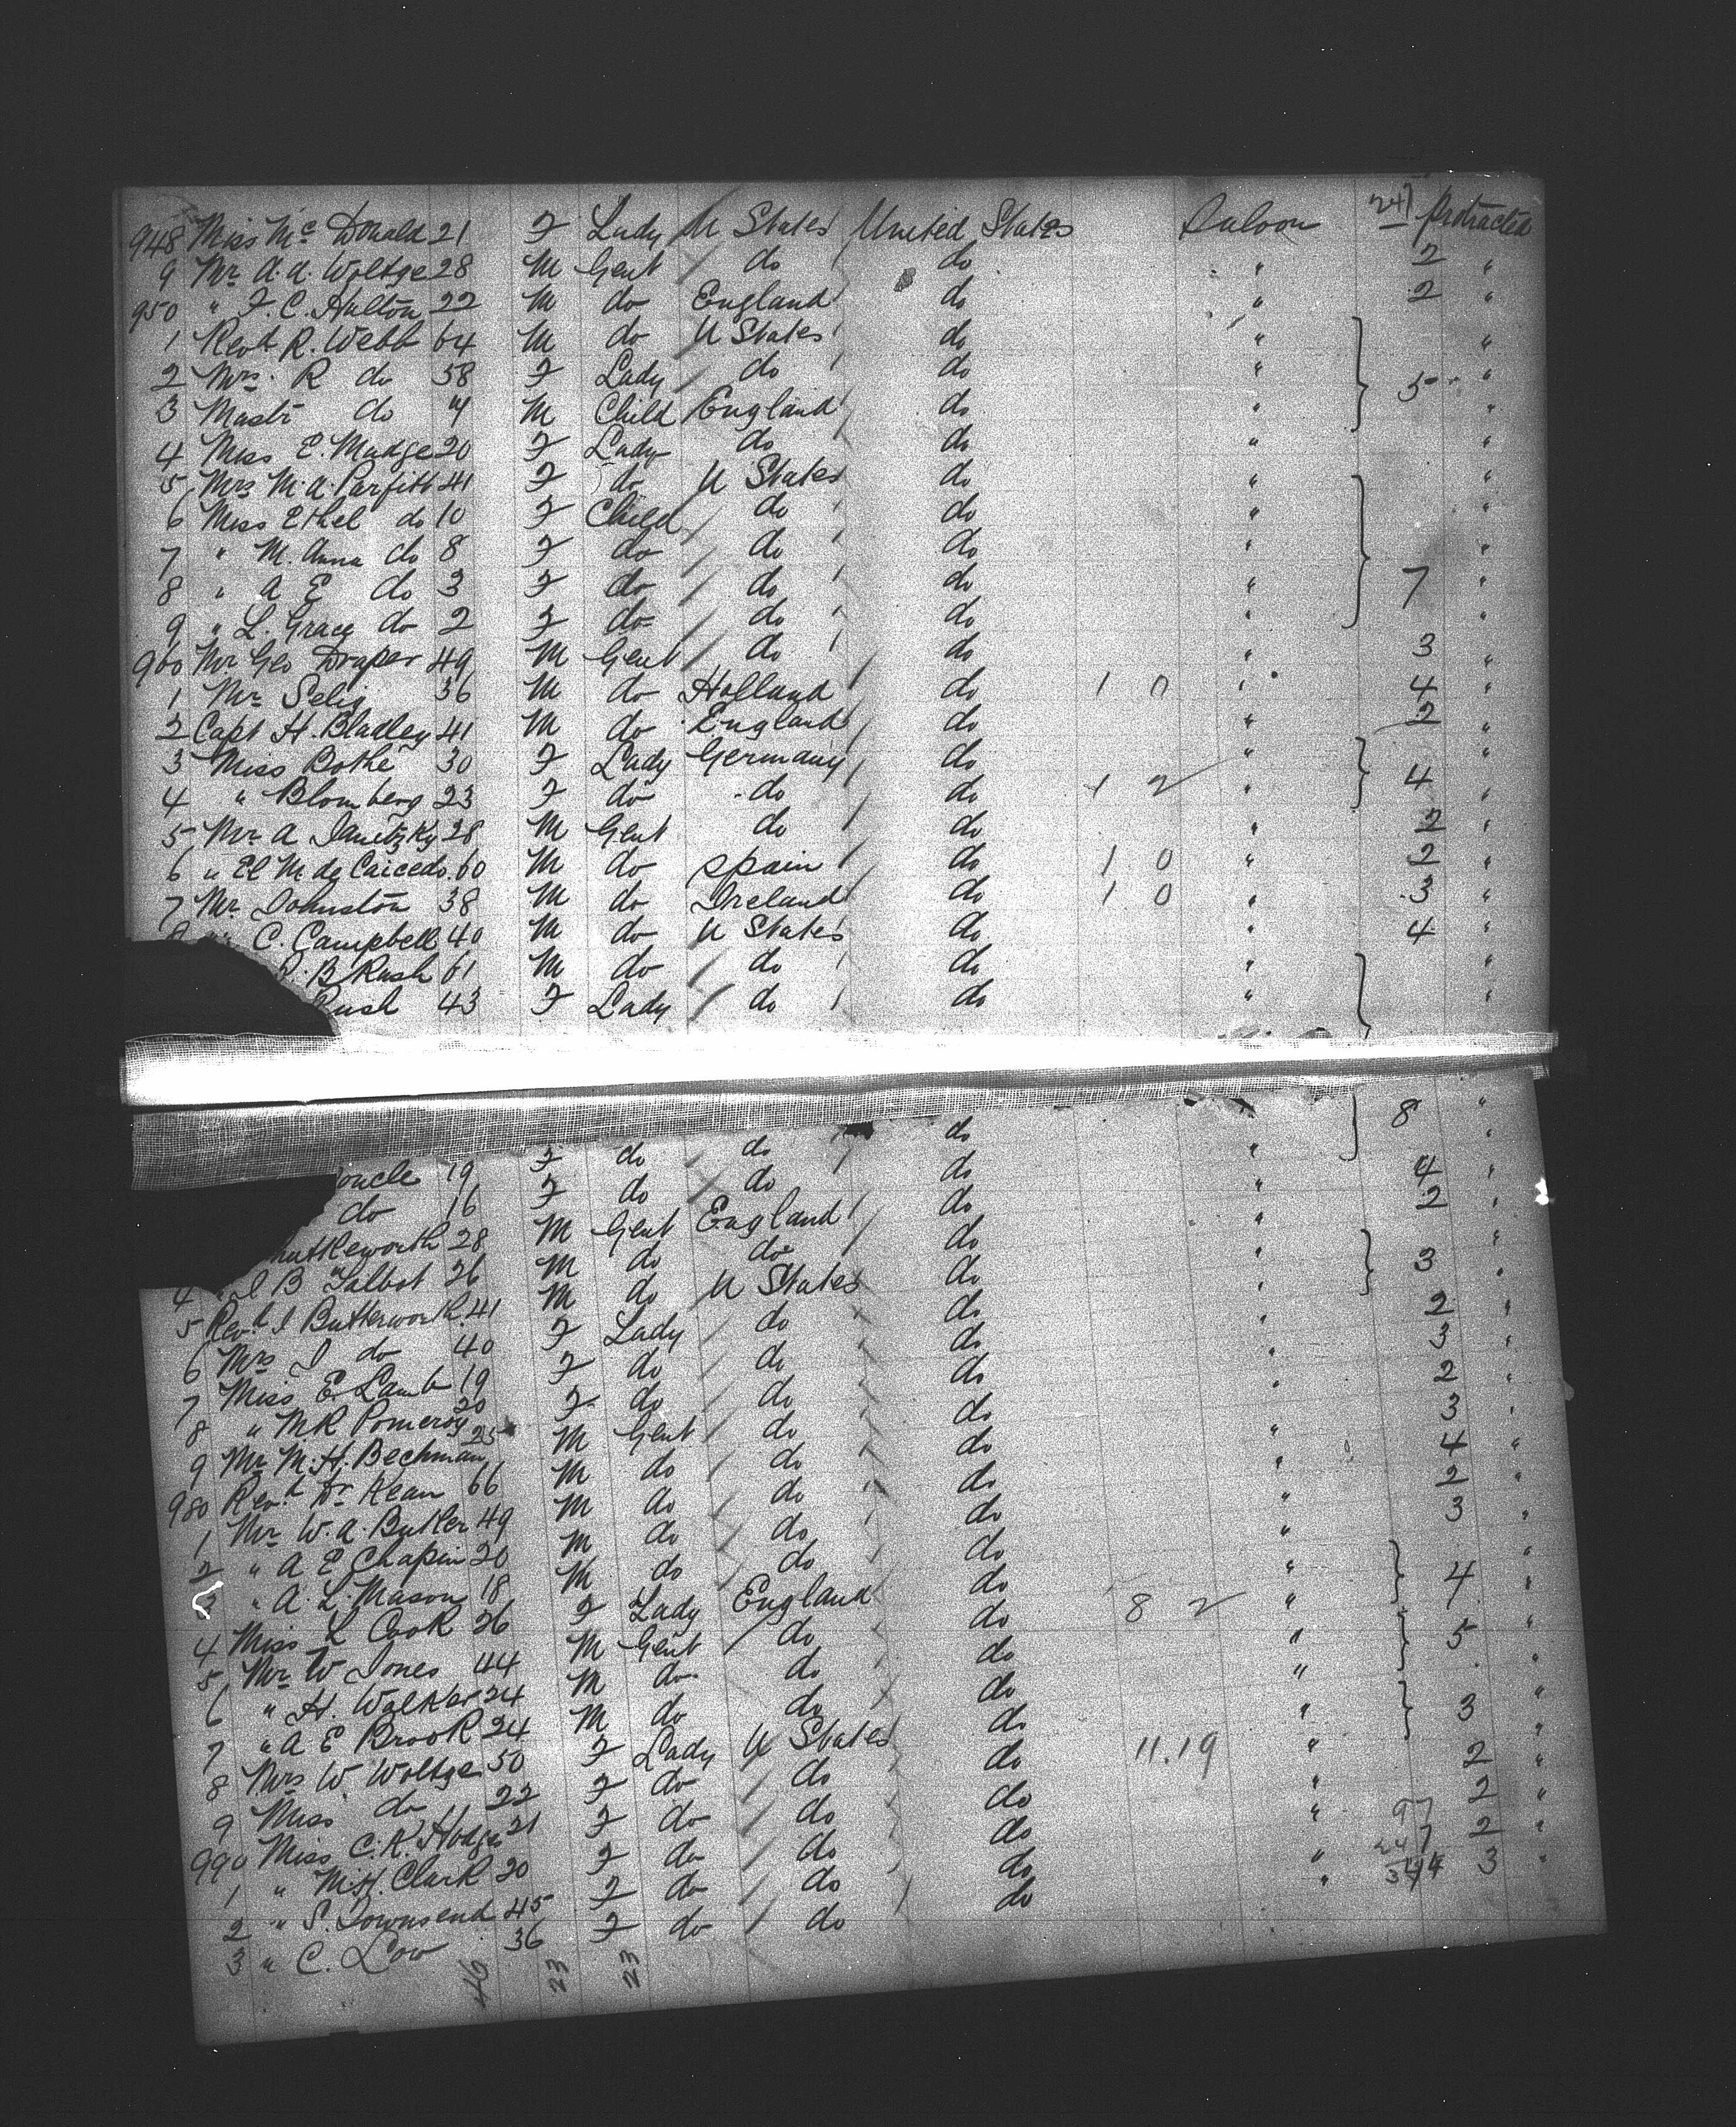 948 Miss Mc Donald 21 F Lady U States United States Saloon 247 protracted
9 Mr A. A. Woltge 28 M Gent do do " 2 "
950 " F. C. Hulton 22 M do England do " 2 "
1 Revd R. Webb 64 M do U States do " "
2 Mrs. R do 58 F Lady do do " 5 "
3 Mastr do 4 M Child England do " "
4 Miss E. Madge 20 F Lady do do " "
5 Mrs M. A. Parfitt 41 F do U States do " "
6 Miss Ethel do 10 F Child do do " "
7 " M. Anna do 8 F do do do " "
8 " A E do 3 F do do do " 7 "
9 " L. Grace do 2 F do do do " "
960 Mr Geo Draper 49 M Gent do do " 3 "
1 Mr Selig 36 M do Holland do 1 0 " 4 "
2 Capt H. Bladley 41 M do England do " 2 "
3 Miss Bothe 30 F Lady Germany do " "
4 " Blomberg 23 F do do do 1 2 " 4 "
5 Mr A 28 M Gent do do " 2 "
6 " El M. de Caicedo. 60 M do Spain do 1 0 " 2 "
7 Mr Johnston 38 M do Ireland do 1 0 " 3 "
C. Campbell 40 M do U States do " 4 "
B Rush 61 M do do do " "
Rush 43 F Lady do do " "
8 "
F do do do " "
19 F do do do " 4 "
do 16 M Gent England do " 2 "
huttleworth 28 M do do do " "
4 " J B Talbot 26 M do U States do " 3 "
5 Revd J Butterworth. 41 F Lady do do " 2 "
6 Mrs J do 40 F do do do " 3 "
7 Miss E. Lamb 19 F do do do " 2 "
8 " M. R Pomeroy 20 M Gent do do " 3 "
9 Mr M. H. Bechman 25 M do do do " 4 "
980 Revd Dr Kean 66 M do do do " 2 "
1 Mr W. A. Butler 49 M do do do " 3 "
2 " A E Chapin 20 M do do do " "
3 " A. L. Mason 18 F Lady England do 8 2 " 4 "
4 Miss L Cook 26 M Gent do do " 5 "
5 Mr W Jones 44 M do do do " "
6 " H. Walker 24 M do do do " 3 "
7 " A E Brook 24 F Lady U States do 11.19 " "
8 Mrs W. Woltge 50 F do do do " 2 "
9 Miss do 22 F do do do " 97 2 "
990 Miss C. K. Hodge 21 F do do do " 247 2 "
1 " M. H. Clark 20 F do do do " 344 3 "
2 " S. Townsend 45 F do do
3 " C. Low 36
46 23 23